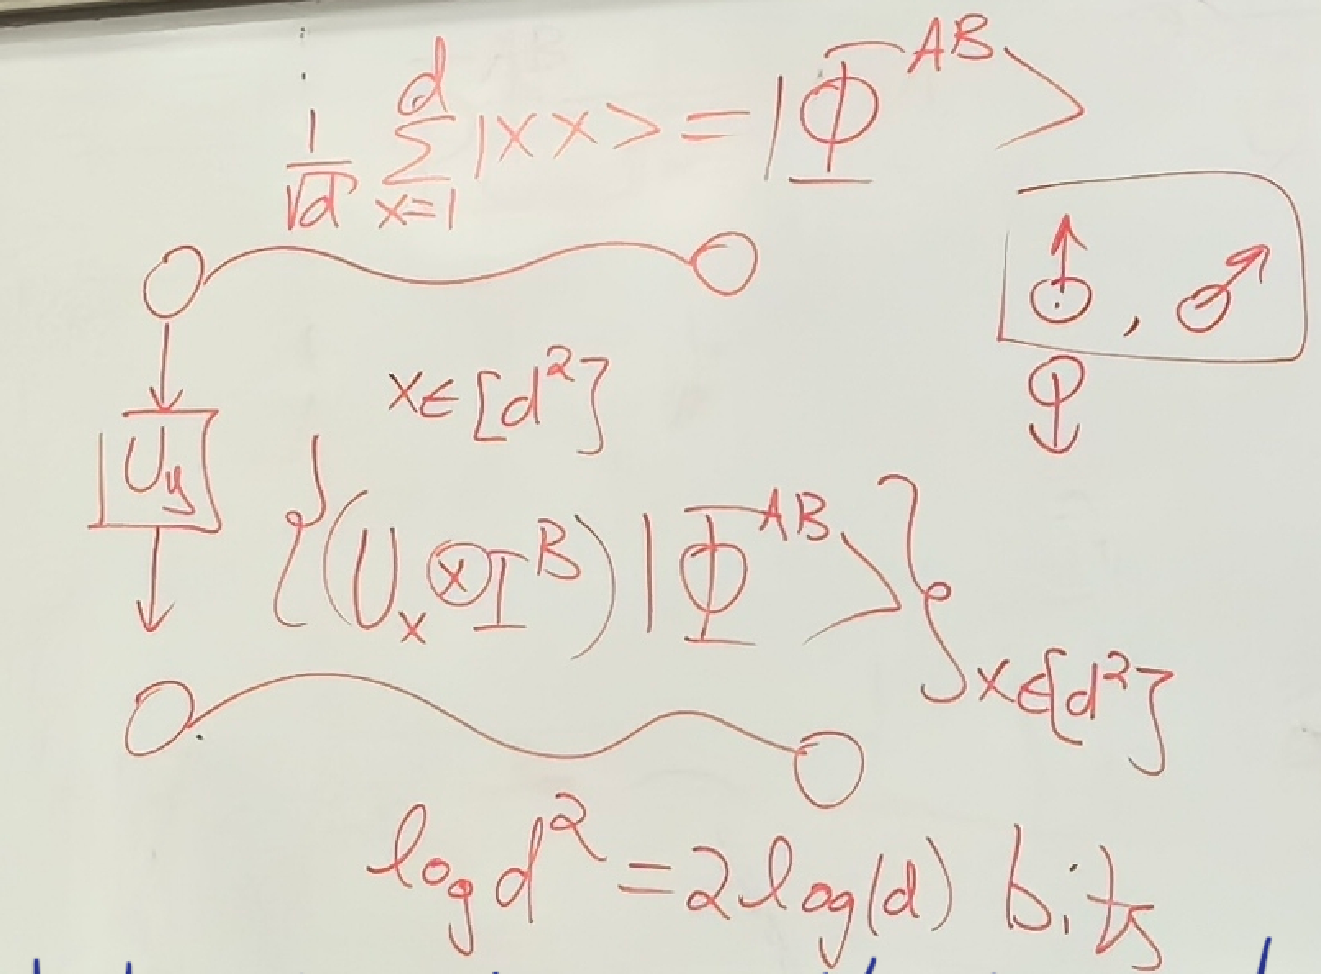 1/√d ∑_{x=1}^{d} |xx> = |Φ^{AB}>
x∈[d²]
U_y
{(U_x ⊗ I^B) |Φ^{AB}>}_{x∈[d²]}
log d² = 2 log(d) bits